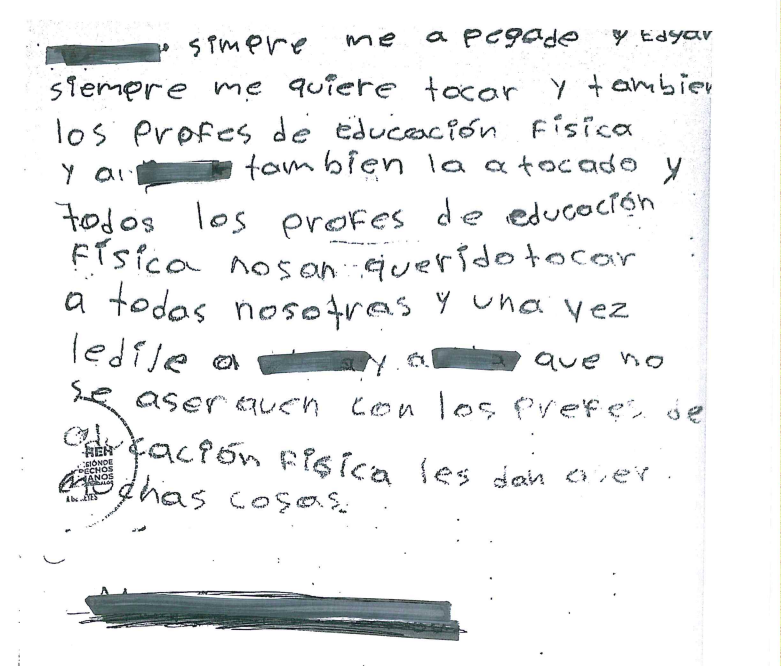 simpre me a pegado y Edgar
siempre me quiere tocar y tambien
los profes de educación Física
y a tambien la a tocado y
todos los profes de educación
Física nosan querido tocar
a todas nosotras y una vez
ledije a y a que no
se aserquen con los profes de
educación Física les dan aser
muchas cosas.